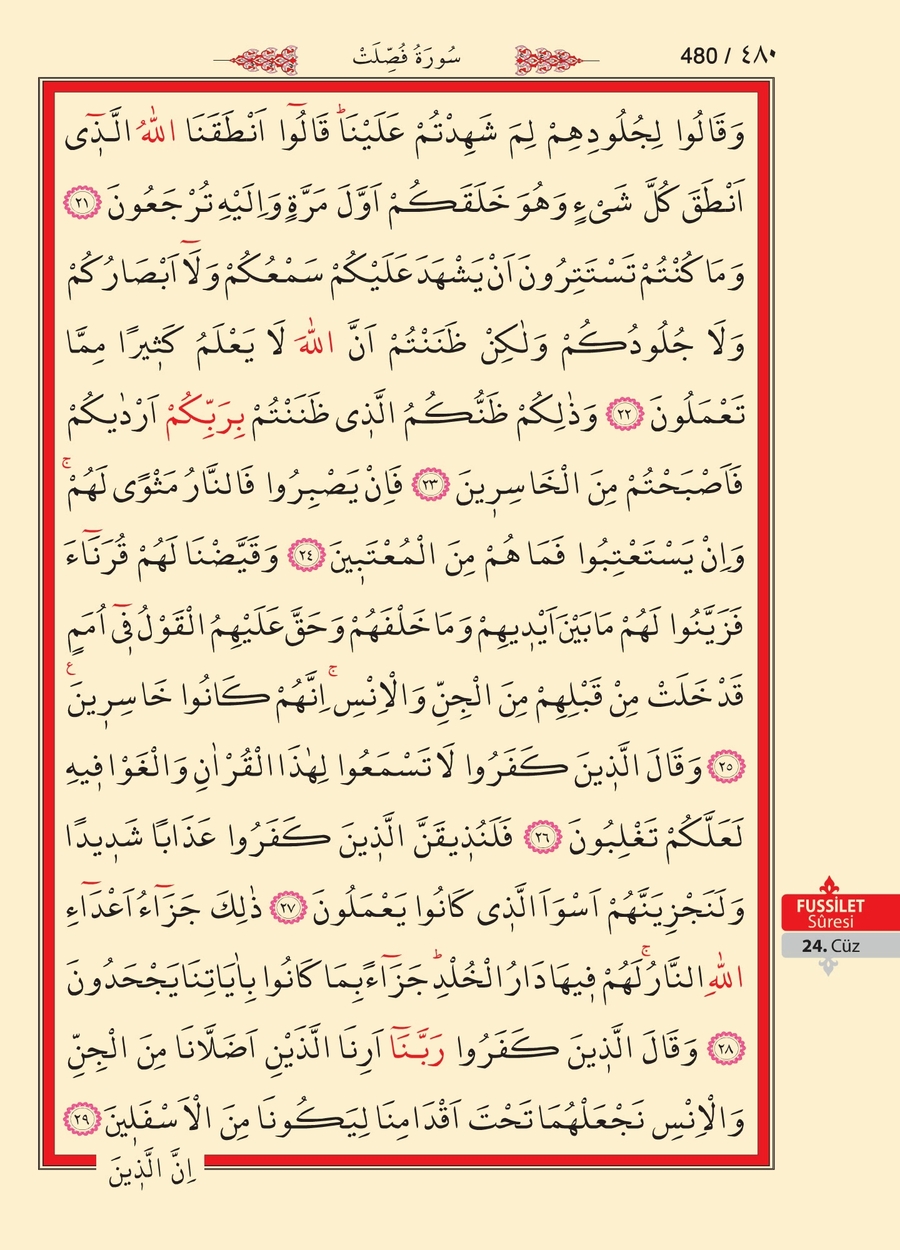 480 / ٤٨٠
سُورَةُ فُصِّلَتْ
وَقَالُوا لِجُلُودِهِمْ لِمَ شَهِدْتُمْ عَلَيْنَاۜ قَالُٓوا اَنْطَقَنَا اللّٰهُ الَّذ۪ٓى
اَنْطَقَ كُلَّ شَىْءٍ وَهُوَ خَلَقَكُمْ اَوَّلَ مَرَّةٍ وَاِلَيْهِ تُرْجَعُونَ ﴿٢١﴾
وَمَا كُنْتُمْ تَسْتَتِرُونَ اَنْ يَشْهَدَ عَلَيْكُمْ سَمْعُكُمْ وَلَٓا اَبْصَارُكُمْ
وَلَا جُلُودُكُمْ وَلٰكِنْ ظَنَنْتُمْ اَنَّ اللّٰهَ لَا يَعْلَمُ كَث۪يرًا مِمَّا
تَعْمَلُونَ ﴿٢٢﴾ وَذٰلِكُمْ ظَنُّكُمُ الَّذ۪ى ظَنَنْتُمْ بِرَبِّكُمْ اَرْدٰيكُمْ
فَاَصْبَحْتُمْ مِنَ الْخَاسِر۪ينَ ﴿٢٣﴾ فَاِنْ يَصْبِرُوا فَالنَّارُ مَثْوًى لَهُمْۚ
وَاِنْ يَسْتَعْتِبُوا فَمَا هُمْ مِنَ الْمُعْتَب۪ينَ ﴿٢٤﴾ وَقَيَّضْنَا لَهُمْ قُرَنَٓاءَ
فَزَيَّنُوا لَهُمْ مَا بَيْنَ اَيْد۪يهِمْ وَمَا خَلْفَهُمْ وَحَقَّ عَلَيْهِمُ الْقَوْلُ ف۪ٓى اُمَمٍ
قَدْ خَلَتْ مِنْ قَبْلِهِمْ مِنَ الْجِنِّ وَالْاِنْسِۚ اِنَّهُمْ كَانُوا خَاسِر۪ينَ ع
﴿٢٥﴾ وَقَالَ الَّذ۪ينَ كَفَرُوا لَا تَسْمَعُوا لِهٰذَا الْقُرْاٰنِ وَالْغَوْا ف۪يهِ
لَعَلَّكُمْ تَغْلِبُونَ ﴿٢٦﴾ فَلَنُذ۪يقَنَّ الَّذ۪ينَ كَفَرُوا عَذَابًا شَد۪يدًا
وَلَنَجْزِيَنَّهُمْ اَسْوَاَ الَّذ۪ى كَانُوا يَعْمَلُونَ ﴿٢٧﴾ ذٰلِكَ جَزَٓاءُ اَعْدَٓاءِ
اللّٰهِ النَّارُۚ لَهُمْ ف۪يهَا دَارُ الْخُلْدِۜ جَزَٓاءً بِمَا كَانُوا بِاٰيَاتِنَا يَجْحَدُونَ
﴿٢٨﴾ وَقَالَ الَّذ۪ينَ كَفَرُوا رَبَّنَٓا اَرِنَا الَّذَيْنِ اَضَلَّانَا مِنَ الْجِنِّ
وَالْاِنْسِ نَجْعَلْهُمَا تَحْتَ اَقْدَامِنَا لِيَكُونَا مِنَ الْاَسْفَل۪ينَ ﴿٢٩﴾
اِنَّ الَّذ۪ينَ
FUSSİLET
Sûresi
24. Cüz